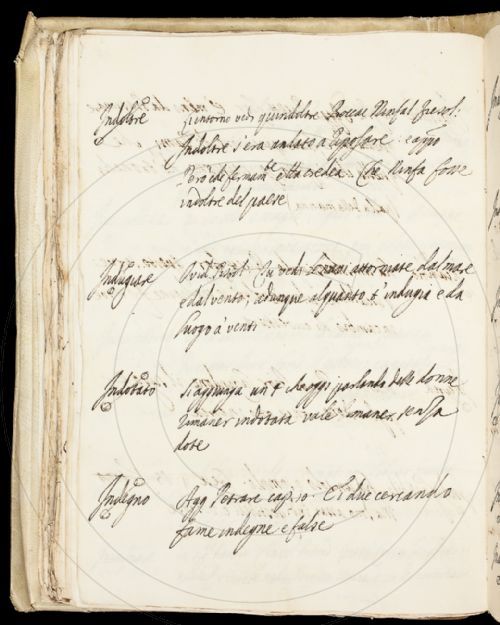 Indoltre
piutorno vedi quindoltre Boccac Ninfal Fiesol:
Indoltre s'era andato a riposare. e app.º
Però che fermam.te ella credea Che Ninfa fosse
indoltre del paese
Indugiare
Ovid Pistol: tu vedi attorniate dal mare
e dal vento; adunque alquanto t'indugia e da
luogo a' venti
Indotato
Si aggiunga che oggi parlando delle donne
rimaner indotata vale rimaner senza
dote
Indegno
Agg Petrarc cap. 10. E i due cercando
fame indegne e false